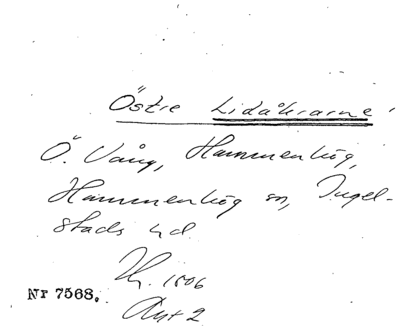 Östre Lidåkrarne
Ö. Vång, Hammenhög,
Hammenhög sn, Ingel-
stads hd
Nr 7568.
Akt 2